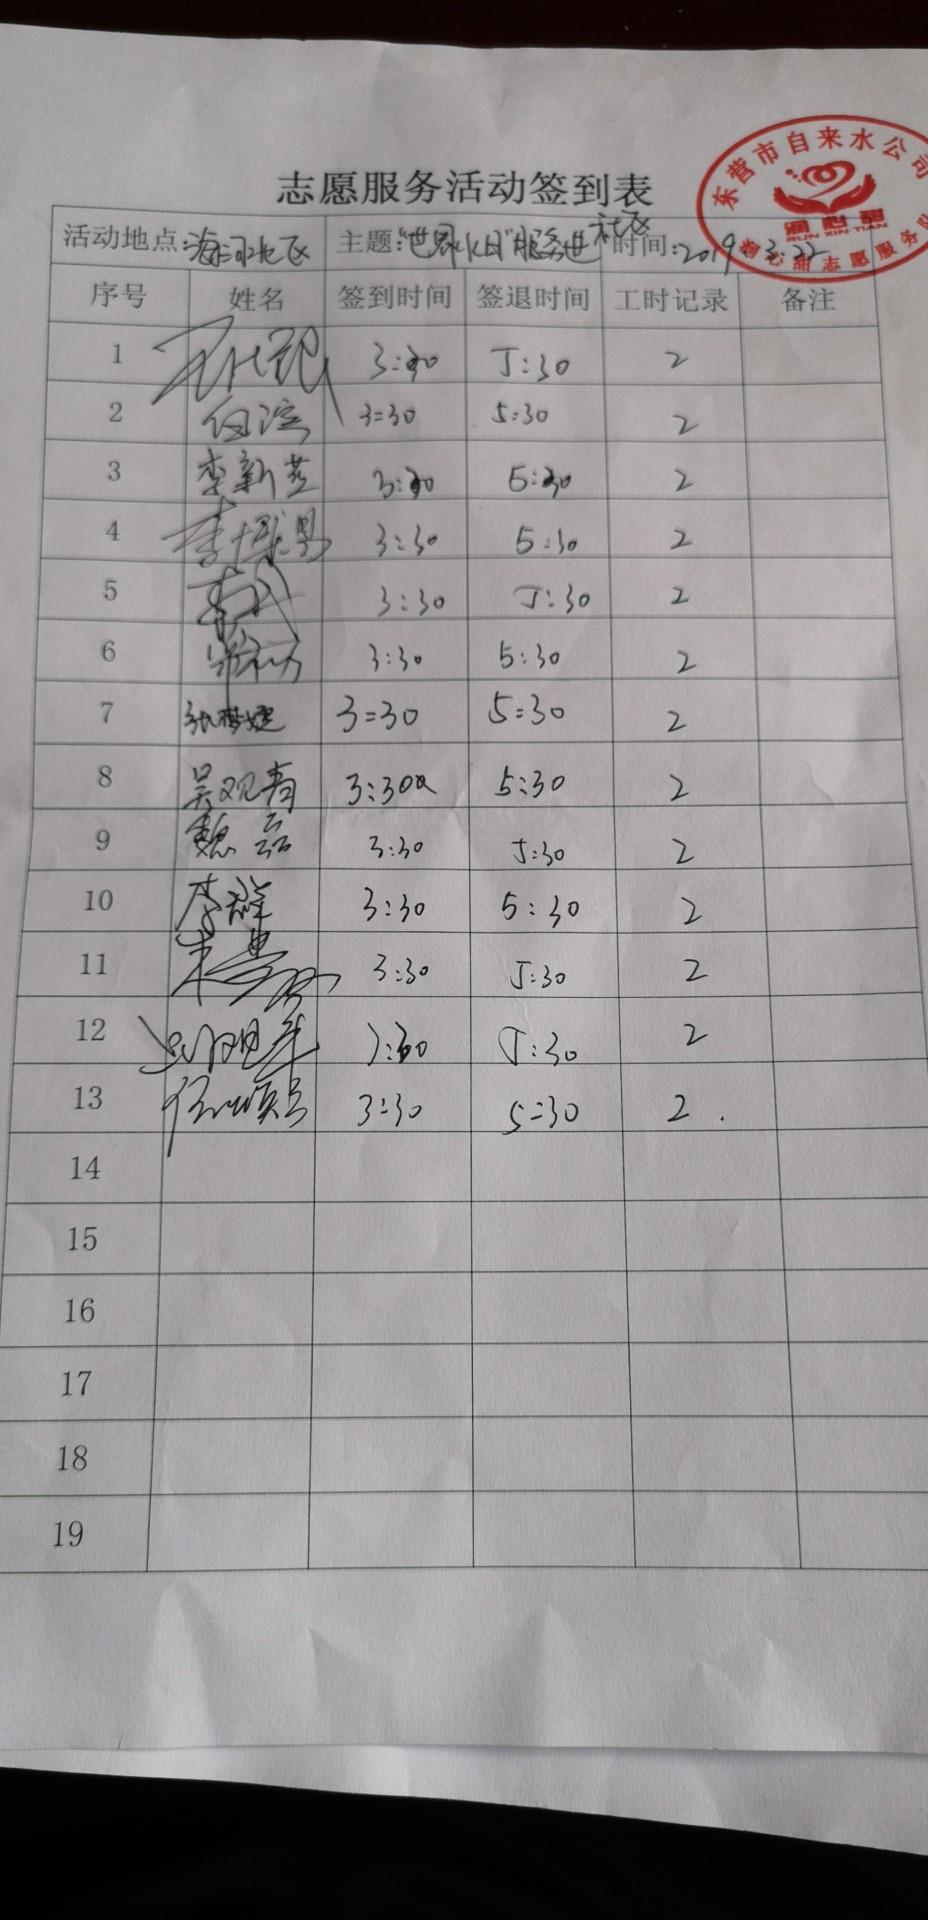 东营市自来水公司
润心田
RUN XIN TIAN
志愿服务活动签到表
活动地点:海河北区 主题:"世界水日"服务进社区 时间:2019.3.22
序号 姓名 签到时间 签退时间 工时记录 备注
1 3:30 5:30 2
2 3:30 5:30 2
3 李新芝 3:30 5:30 2
4 李博男 3:30 5:30 2
5 3:30 5:30 2
6 3:30 5:30 2
7 张梦婕 3:30 5:30 2
8 吴观青 3:30 5:30 2
9 魏磊 3:30 5:30 2
10 李群 3:30 5:30 2
11 3:30 5:30 2
12 3:30 5:30 2
13 3:30 5:30 2
14
15
16
17
18
19